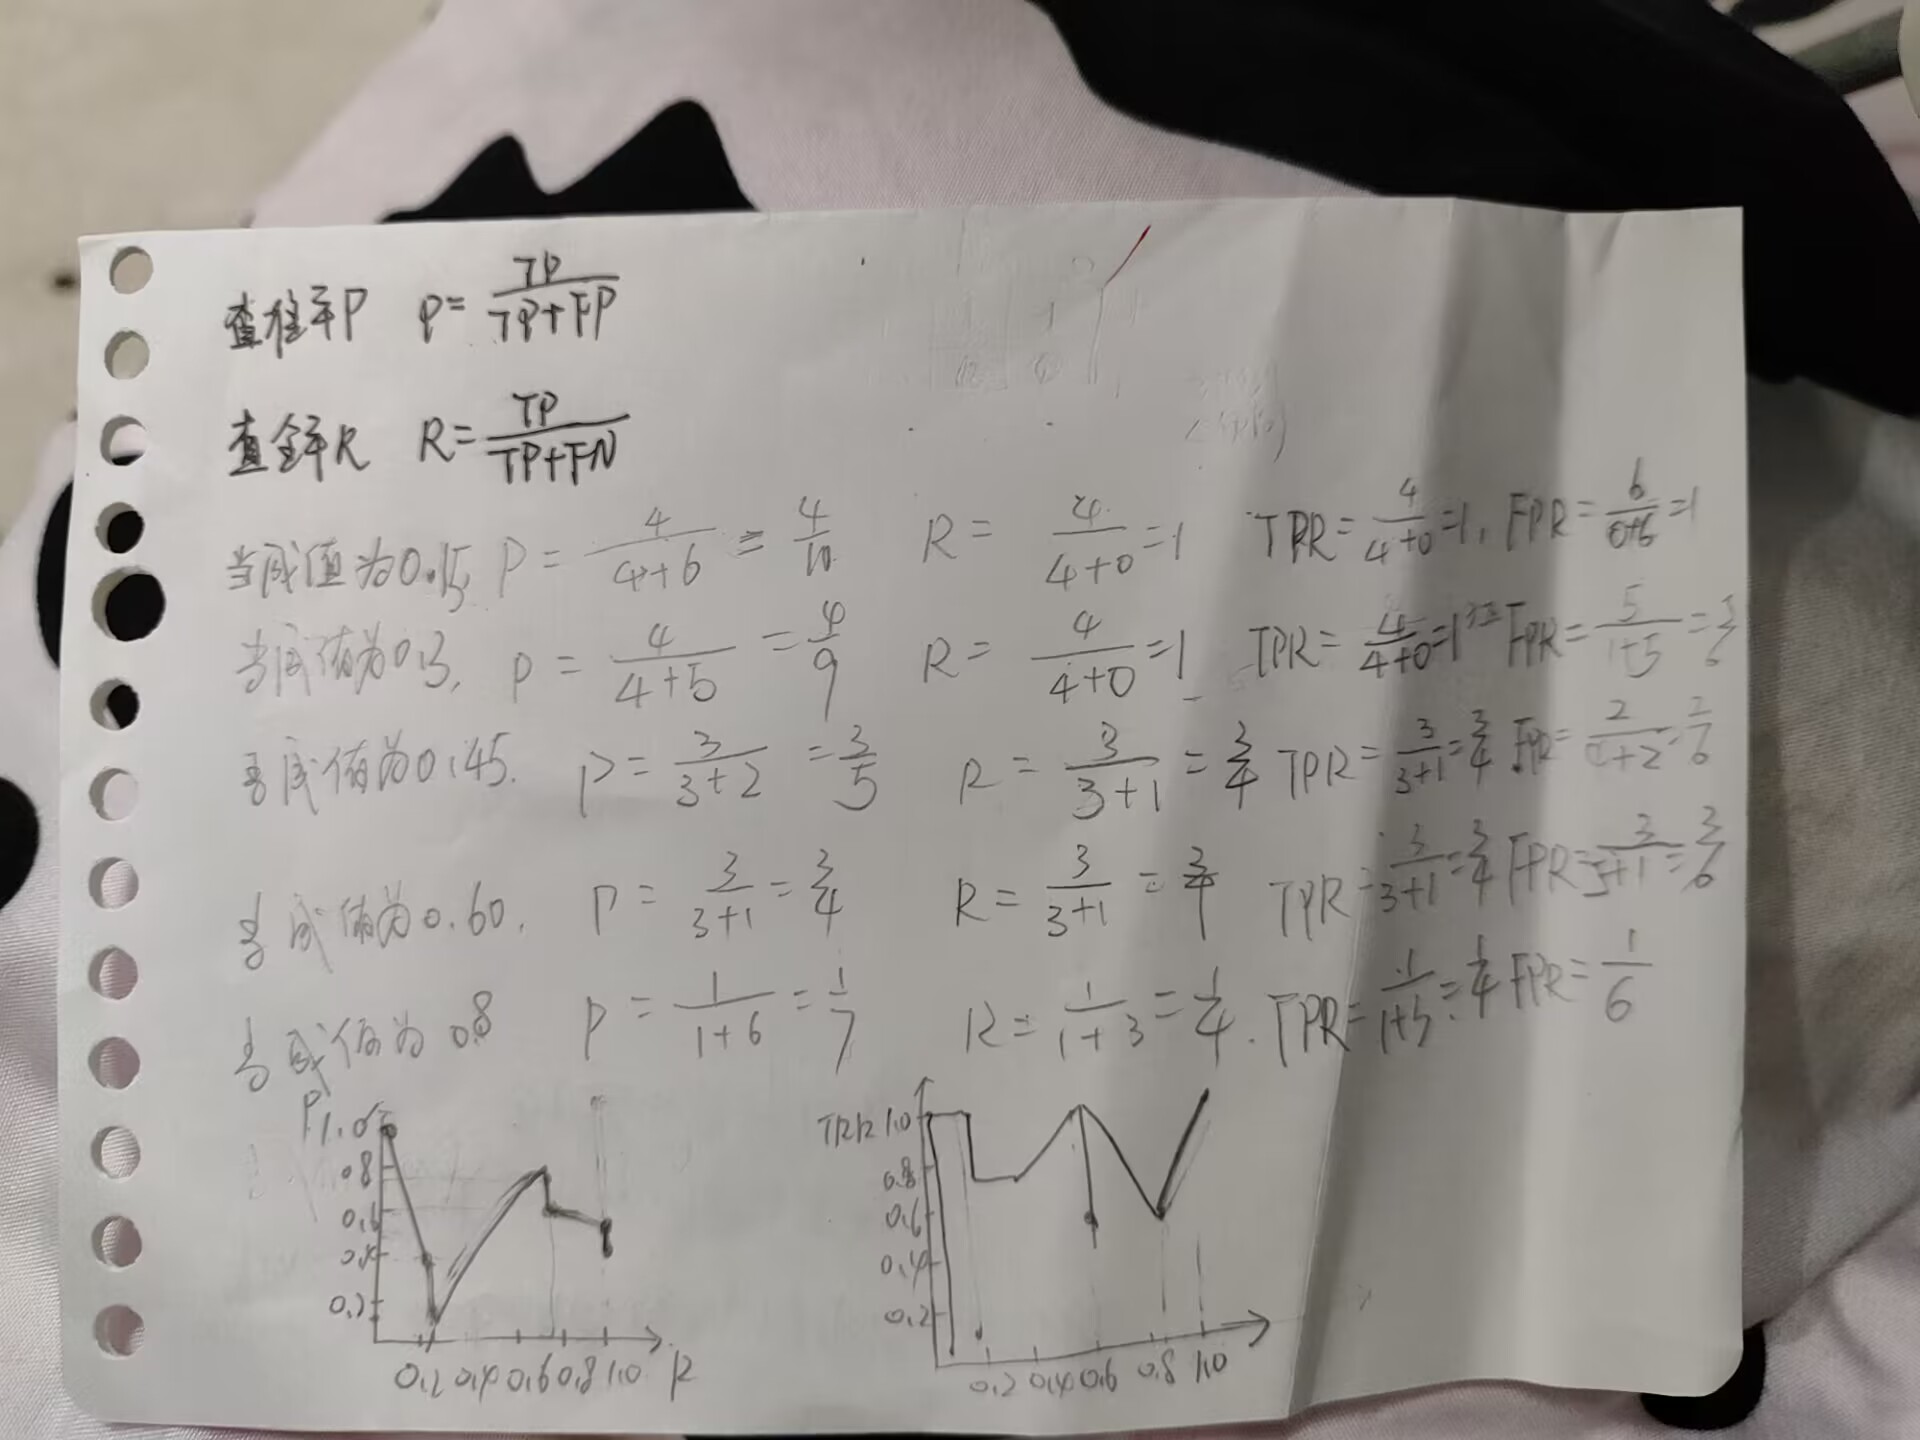 查准率P P=TP/(TP+FP)
查全率R R=TP/(TP+FN)
当阈值为0.15 P=4/(4+6)=4/10 R=4/(4+0)=1 TPR=4/(4+0)=1, FPR=6/(0+6)=1
当阈值为0.3, P=4/(4+5)=4/9 R=4/(4+0)=1 TPR=4/(4+0)=1 FPR=5/(1+5)=5/6
当阈值为0.45. P=3/(3+2)=3/5 R=3/(3+1)=3/4 TPR=3/(3+1)=3/4 FPR=2/( +2)=2/6
当阈值为0.60, P=3/(3+1)=3/4 R=3/(3+1)=3/4 TPR=3/(3+1)=3/4 FPR=3/(5+1)=3/6
当阈值为0.8 P=1/(1+6)=1/7 R=1/(1+3)=1/4. TPR=1/(1+3)=1/4 FPR=1/6
P 1.0 TPR 1.0
0.8 0.8
0.6 0.6
0.4 0.4
0.2 0.2
0.2 0.4 0.6 0.8 1.0 R 0.2 0.4 0.6 0.8 1.0